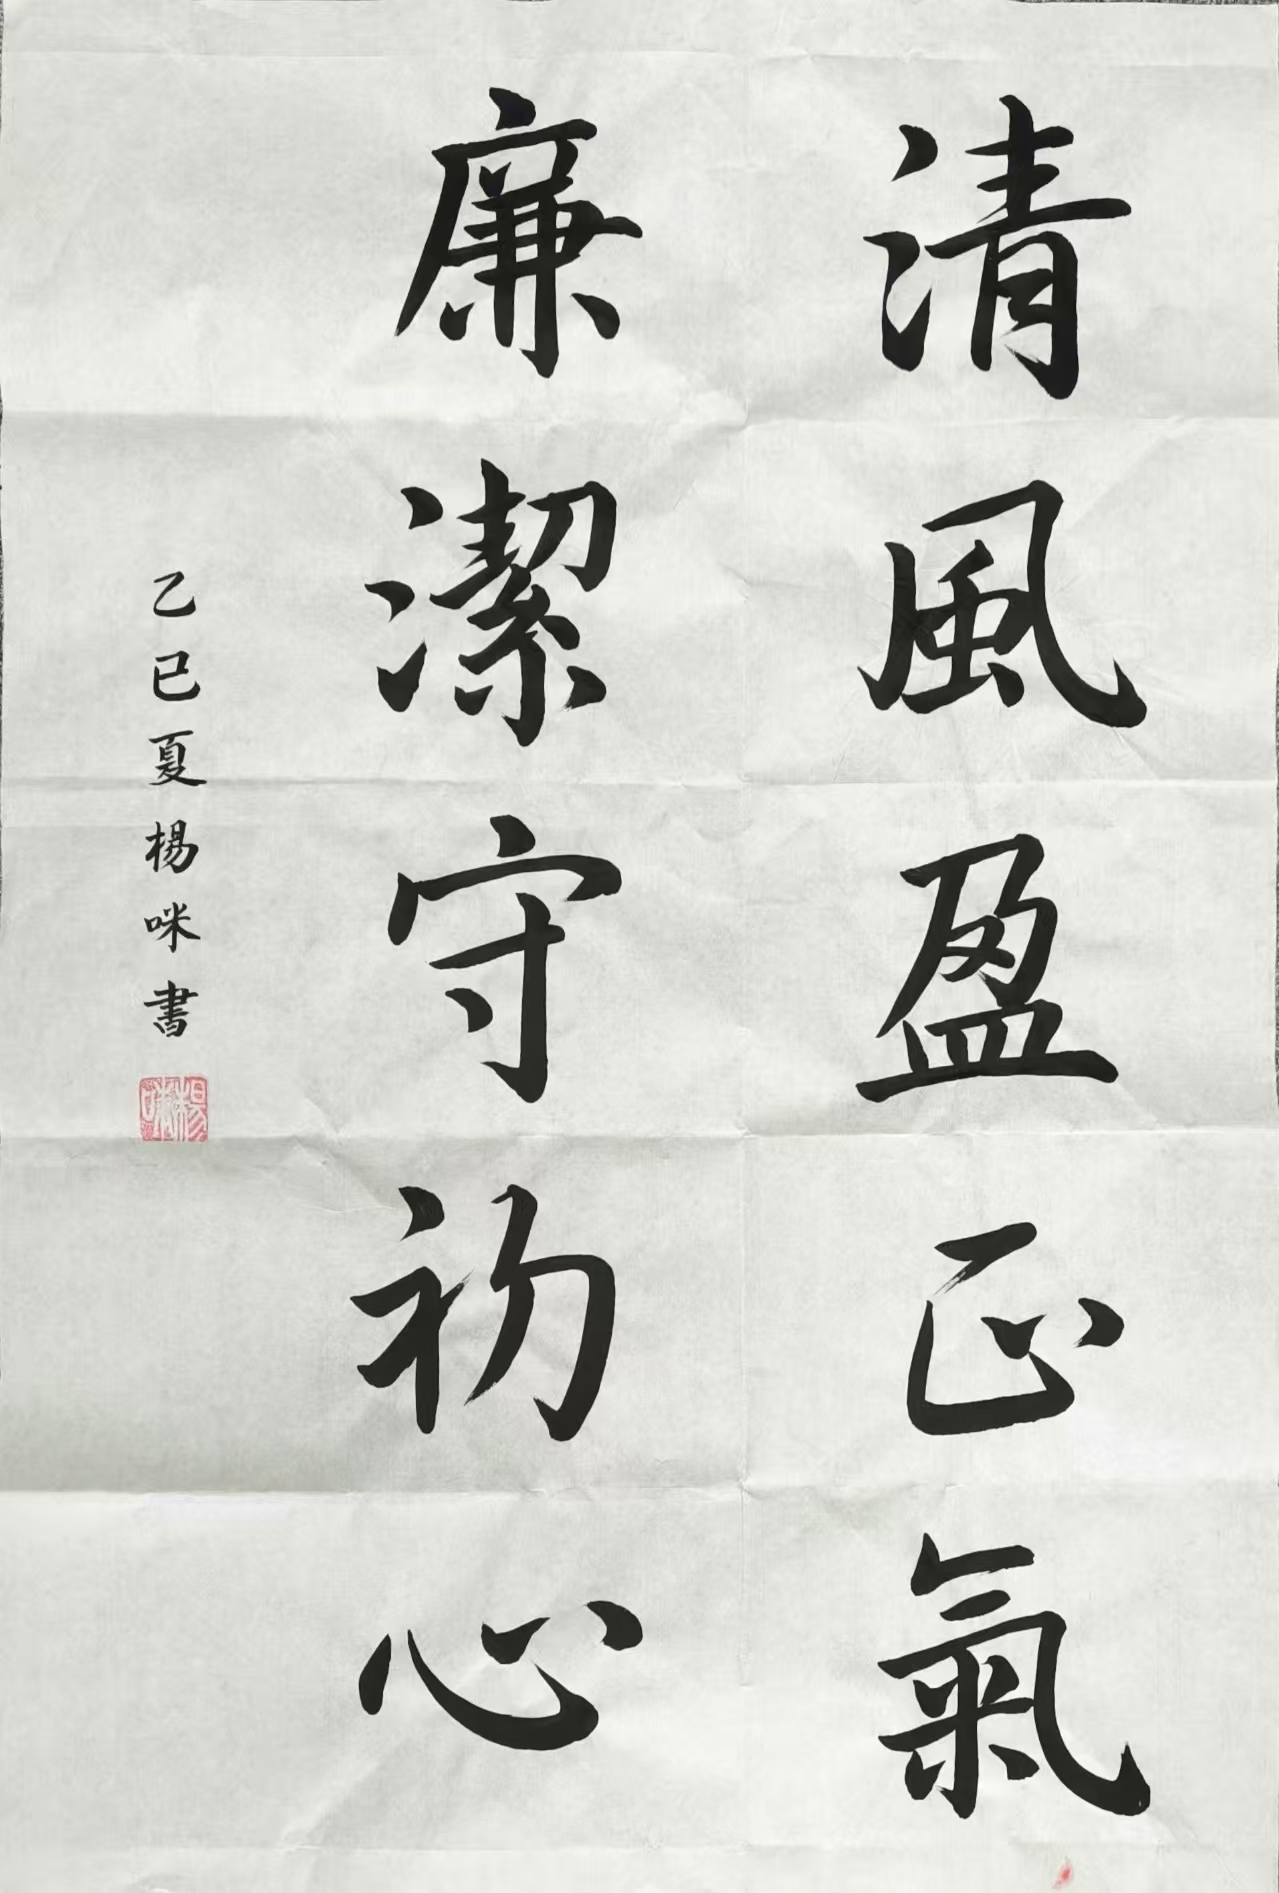 清風盈正氣
廉潔守初心
乙巳夏楊咪書
楊咪